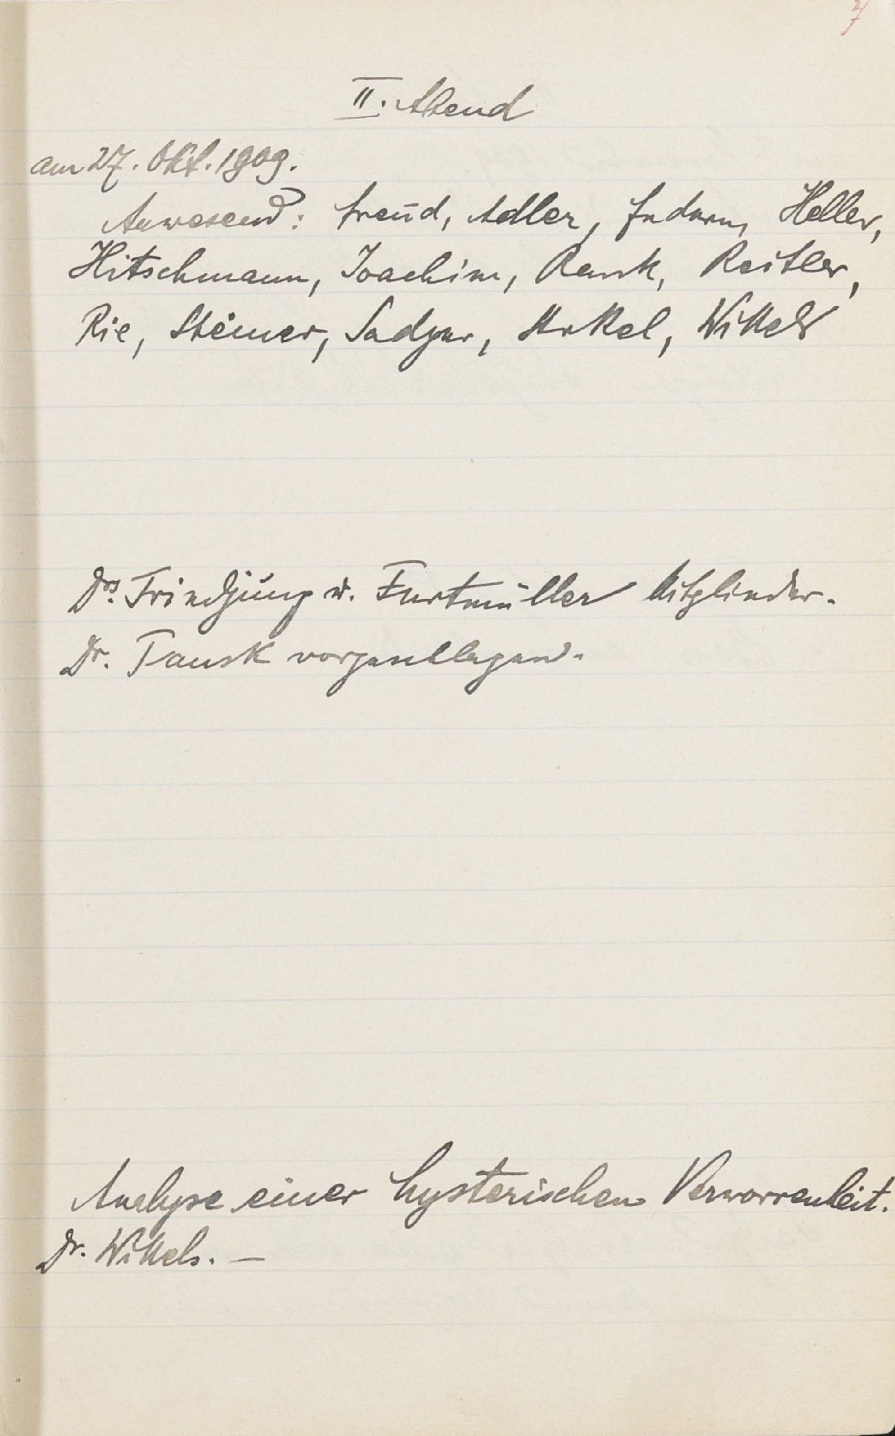 7
II. Abend
am 27. Okt. 1909.
Anwesend: Freud, Adler, Federn, Heller,
Hitschmann, Joachim, Rank, Reitler,
Rie, Steiner, Sadger, Stekel, Wittels
Drs. Friedjung u. Furtmüller Mitglieder.
Dr. Tausk vorgeschlagen.
Analyse einer hysterischen Verworrenheit.
Dr. Wittels. —